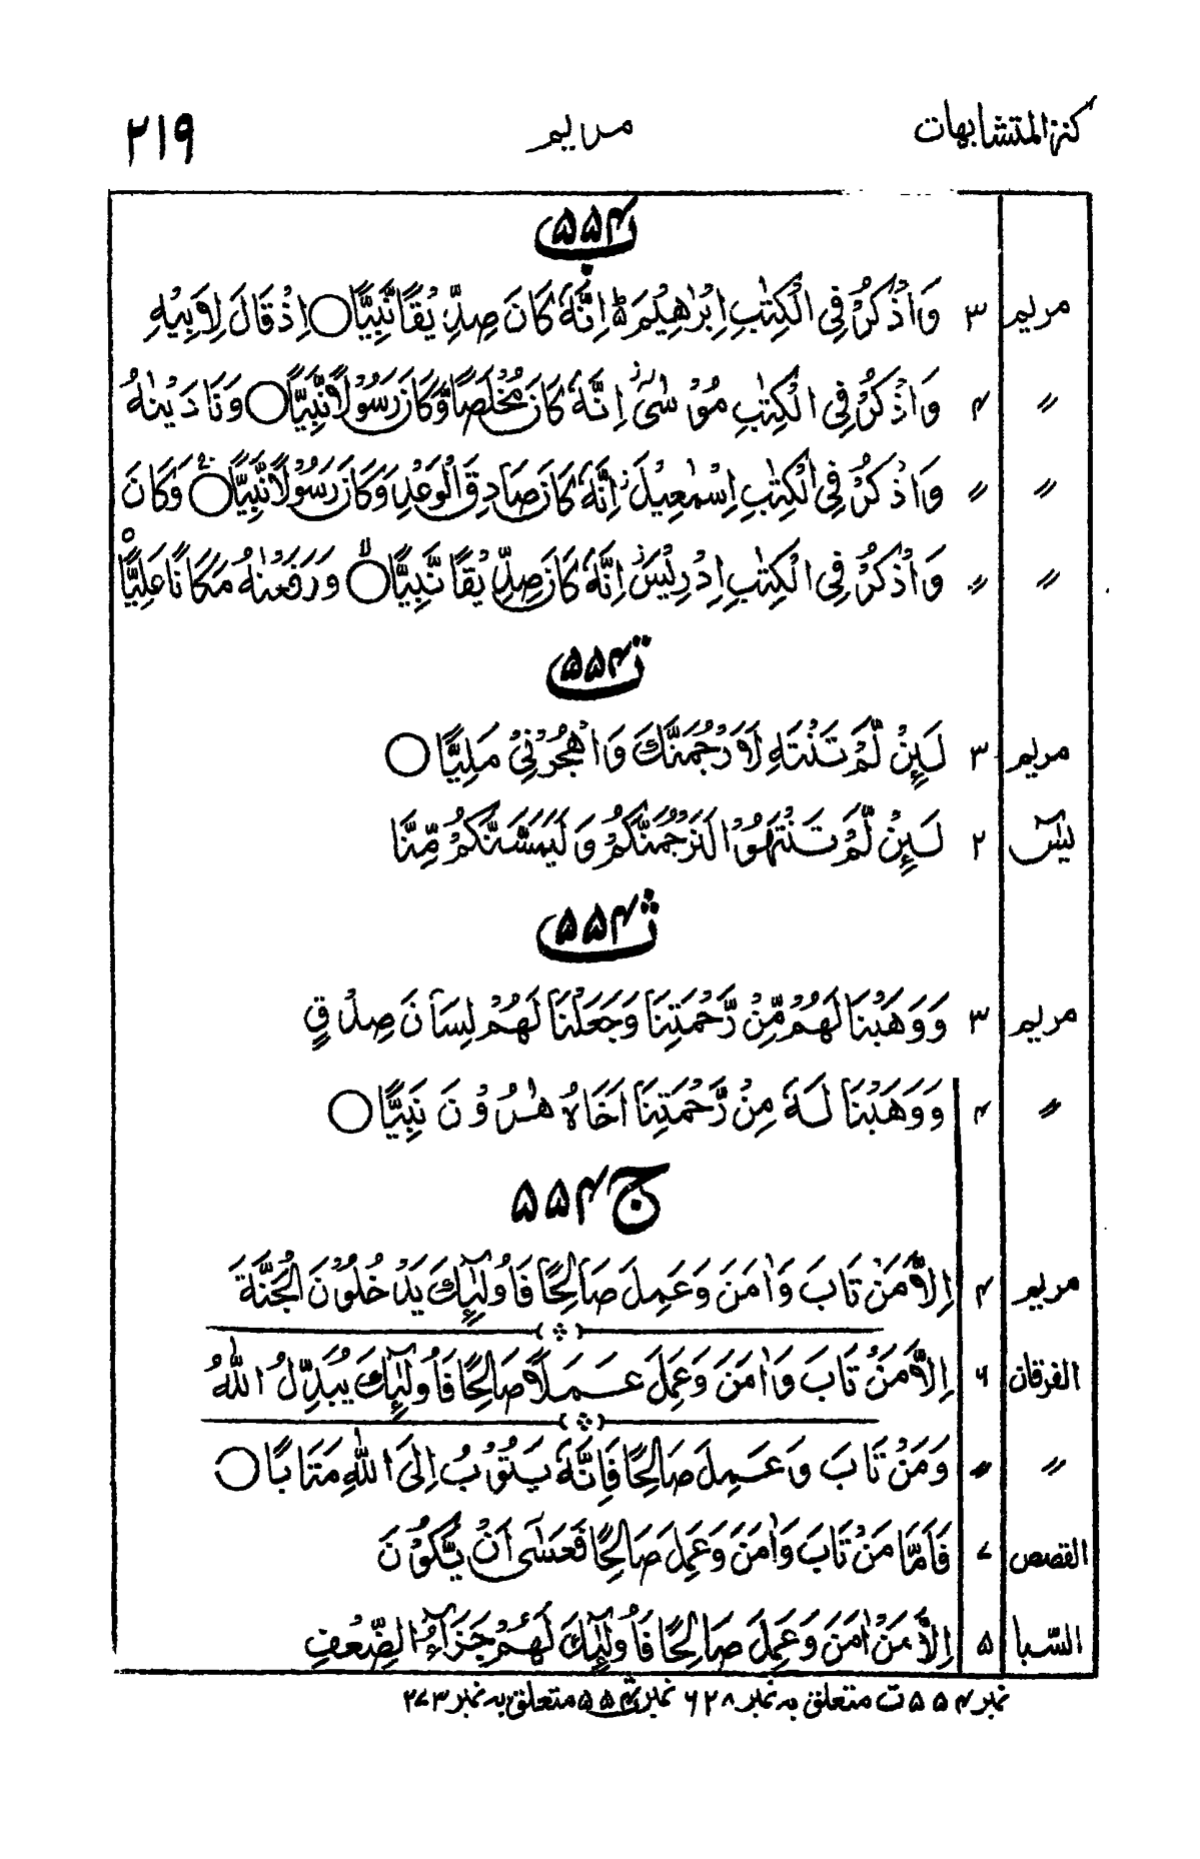 كنز المتشابهات مريم ٢١٩
٥٥٤ ب
مريم ٣ وَاذْكُرْ فِي الْكِتٰبِ اِبْرٰهِيْمَ ؕ اِنَّهٗ كَانَ صِدِّيْقًا نَّبِيًّا ○ اِذْ قَالَ لِاَبِيْهِ
〃 ۴ وَاذْكُرْ فِي الْكِتٰبِ مُوْسٰٓى ؗ اِنَّهٗ كَانَ مُخْلَصًا وَّكَانَ رَسُوْلًا نَّبِيًّا ○ وَنَادَيْنٰهُ
〃 〃 وَاذْكُرْ فِي الْكِتٰبِ اِسْمٰعِيْلَ ؗ اِنَّهٗ كَانَ صَادِقَ الْوَعْدِ وَكَانَ رَسُوْلًا نَّبِيًّا ○ۚ وَكَانَ
〃 〃 وَاذْكُرْ فِي الْكِتٰبِ اِدْرِيْسَ ؗ اِنَّهٗ كَانَ صِدِّيْقًا نَّبِيًّا ○ۙ وَرَفَعْنٰهُ مَكَانًا عَلِيًّا
٥٥۴ ت
مريم ٣ لَئِنْ لَّمْ تَنْتَهِ لَاَرْجُمَنَّكَ وَاهْجُرْنِيْ مَلِيًّا ○
يٰسٓ ٢ لَئِنْ لَّمْ تَنْتَهُوْا لَنَرْجُمَنَّكُمْ وَلَيَمَسَّنَّكُمْ مِّنَّا
٥٥۴ ث
مريم ٣ وَوَهَبْنَا لَهُمْ مِّنْ رَّحْمَتِنَا وَجَعَلْنَا لَهُمْ لِسَانَ صِدْقٍ
〃 ۴ وَوَهَبْنَا لَهٗ مِنْ رَّحْمَتِنَا اَخَاهُ هٰرُوْنَ نَبِيًّا ○
٥٥۴ ج
مريم ۴ اِلَّا مَنْ تَابَ وَاٰمَنَ وَعَمِلَ صَالِحًا فَاُولٰٓئِكَ يَدْخُلُوْنَ الْجَنَّةَ
الفرقان ۶ اِلَّا مَنْ تَابَ وَاٰمَنَ وَعَمِلَ عَمَلًا صَالِحًا فَاُولٰٓئِكَ يُبَدِّلُ اللّٰهُ
〃 〃 وَمَنْ تَابَ وَعَمِلَ صَالِحًا فَاِنَّهٗ يَتُوْبُ اِلَى اللّٰهِ مَتَابًا ○
القصص ۷ فَاَمَّا مَنْ تَابَ وَاٰمَنَ وَعَمِلَ صَالِحًا فَعَسٰٓى اَنْ يَّكُوْنَ
السّبا ۵ اِلَّا مَنْ اٰمَنَ وَعَمِلَ صَالِحًا فَاُولٰٓئِكَ لَهُمْ جَزَآءُ الضِّعْفِ
نمبر ۵۵۴ ت متعلق بہ نمبر ۶۲۸ نمبر ۵۵۴ ث متعلق بہ نمبر ۲۷۳